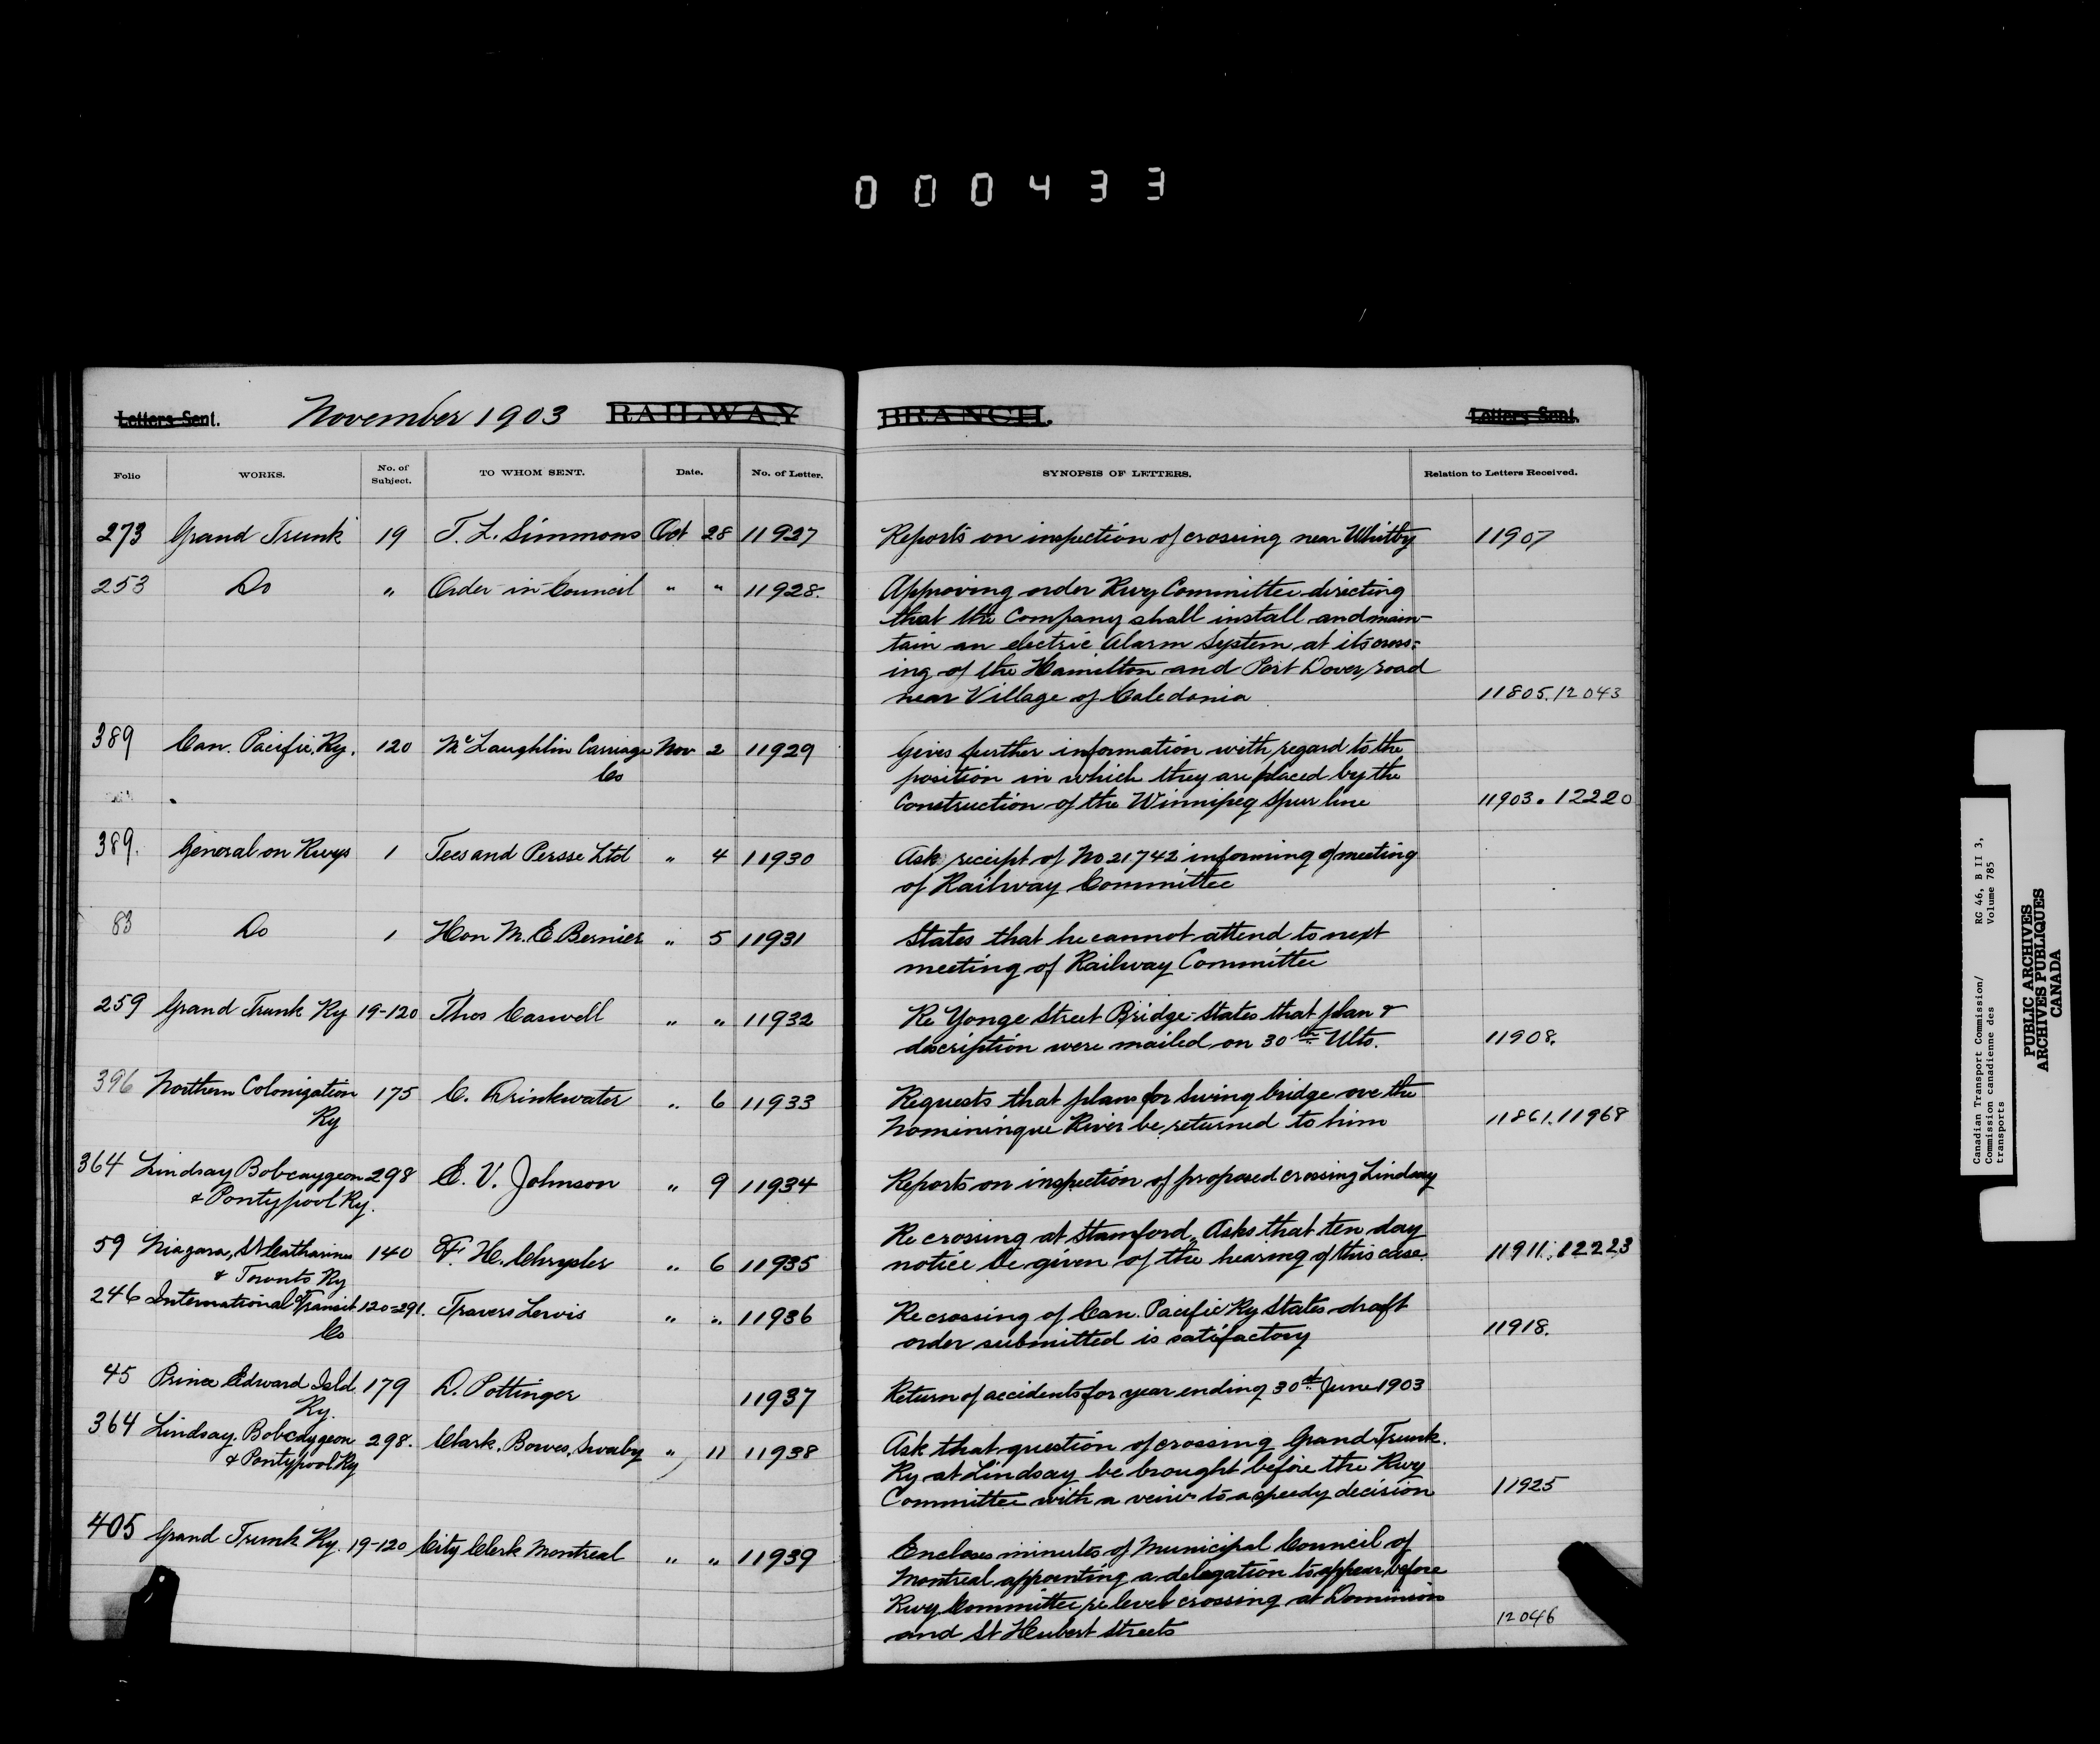 000433
Letters Sent. November 1903 RAILWAY BRANCH. Letters Sent.
Folio WORKS. No. of Subject. TO WHOM SENT. Date. No. of Letter. SYNOPSIS OF LETTERS. Relation to Letters Received.
273 Grand Trunk 19 T. L. Simmons Oct 28 11927 Reports on inspection of crossing near Whitby 11907
253 Do " Order-in-Council " " 11928. Approving order Rwy Committee directing
that the Company shall install and main-
tain an electric Alarm System at its cross-
ing of the Hamilton and Port Dover road
near Village of Caledonia 11805. 12043
389 Can. Pacific Ry. 120 McLaughlin Carriage Nov 2 11929 Gives further information with regard to the
Co position in which they are placed by the
Construction of the Winnipeg Spur line 11903. 12220
389. General on Rwys 1 Tees and Persse Ltd " 4 11930 Ask receipt of No 21742 informing of meeting
of Railway Committee
83 Do 1 Hon M. E Bernier " 5 11931 States that he cannot attend to next
meeting of Railway Committee
259 Grand Trunk Ry 19-120 Thos Caswell " " 11932 Re Yonge Street Bridge-States that plan &
discription were mailed on 30th Ulto. 11908.
396 Northern Colonization 175 C. Drinkwater " 6 11933 Requests that plans for Swing bridge ove the
Ry Nominingue River be returned to him 11861. 11968
364 Lindsay Bobcaygeon 298 E. V. Johnson " 9 11934 Reports on inspection of proposed crossing Lindsay
& Pontypool Ry.
59 Niagara, St Catharines 140 F. H. Chrysler " 6 11935 Re crossing at Stamford, Asks that ten day
& Toronto Ry notice be given of the hearing of this case. 11911. 12223
246 International Transit 120-291. Travers Lewis " " 11936 Re crossing of Can. Pacific Ry States draft
Co order submitted is satisfactory 11918.
45 Prince Edward Isld 179 D. Pottinger 11937 Return of accidents for year ending 30th June 1903
Ry.
364 Lindsay. Bobcaygeon 298. Clark, Bowes, Swaby " 11 11938 Ask that question of crossing Grand Trunk.
& Pontypool Ry Ry at Lindsay be brought before the Rwy
Committee with a veiw to a speedy decision 11925
405 Grand Trunk Ry. 19-120 City Clerk Montreal " " 11939 Encloses minutes of Municipal Council of
Montreal appointing a delegation to appear before
Rwy Committee re level crossing at Dominion
and St Hubert Streets 12046
Canadian Transport Commission/ RG 46, B II 3,
Commission canadienne des Volume 785
transports
PUBLIC ARCHIVES
ARCHIVES PUBLIQUES
CANADA